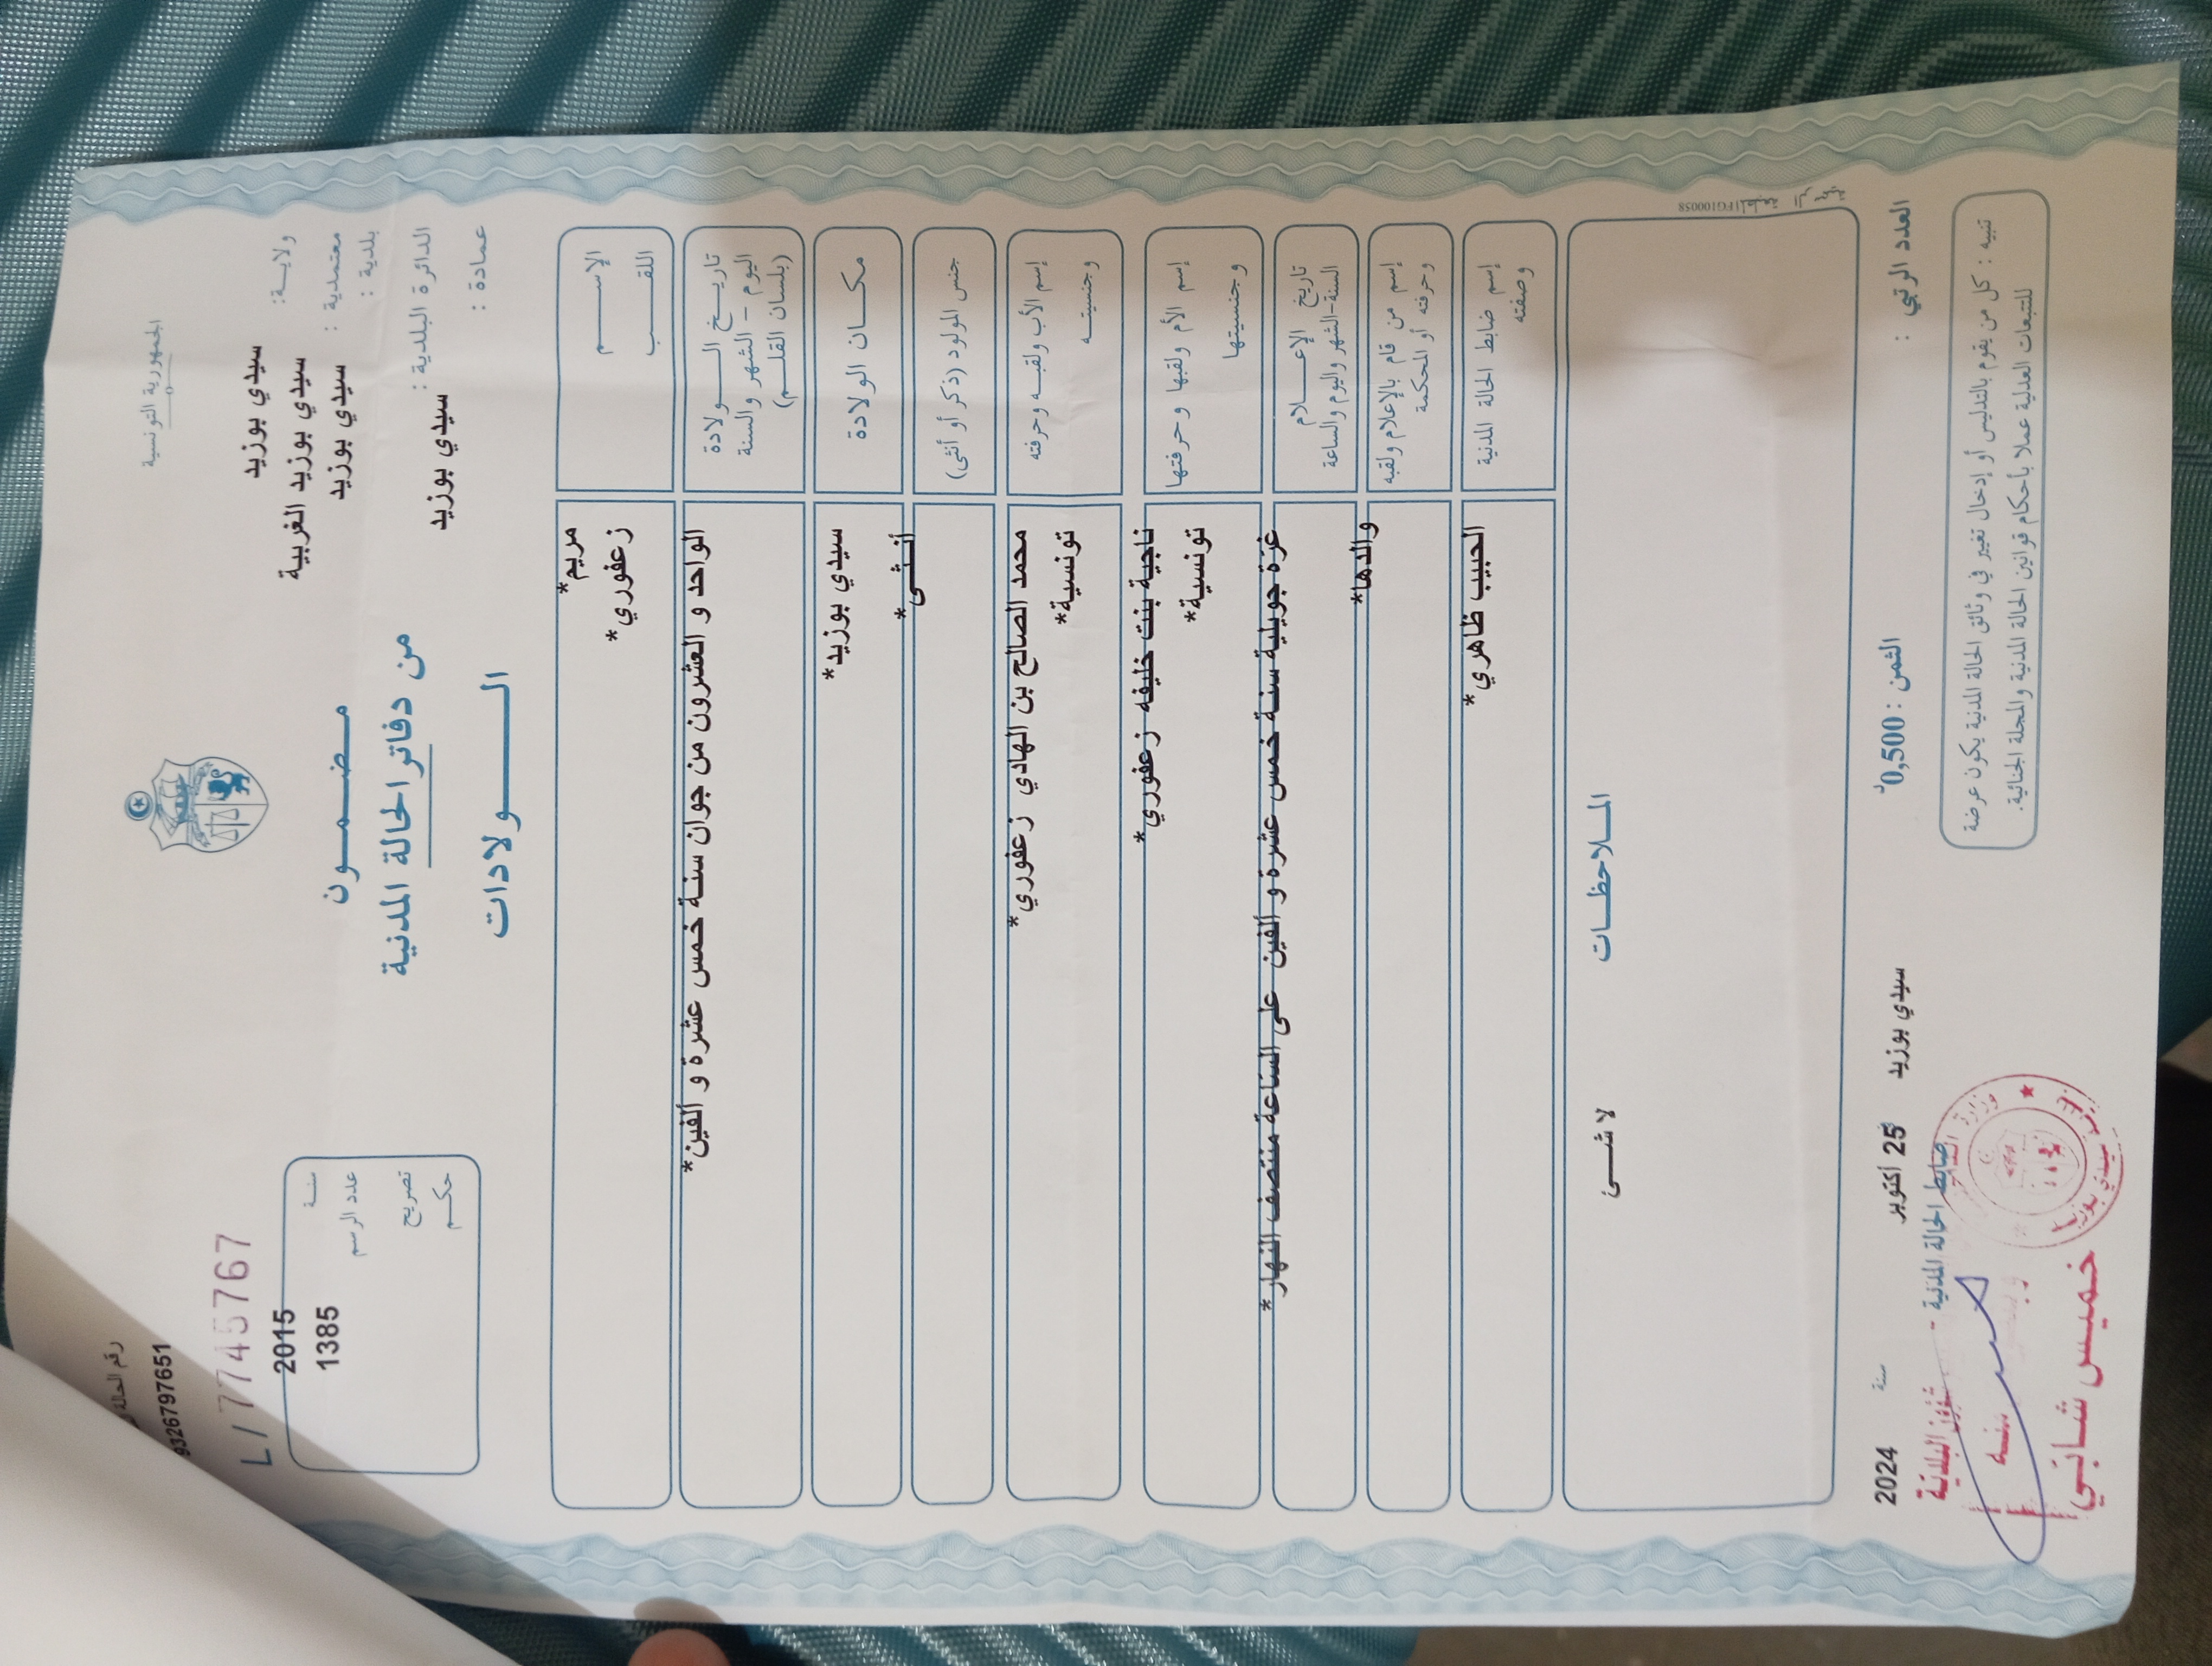 الجمهورية التونسية
رقم الحالة
9326797651
L / 7745767
ولايـــة: سيدي بوزيد
معتمدية : سيدي بوزيد الغربية
بلدية : سيدي بوزيد
الدائرة البلدية : سيدي بوزيد
عمادة :
مـضـمــون
من دفاتر الحالة المدنية
الــــولادات
سنـة 2015
عدد الرسم 1385
تصريح
حكـم
الإســــم مريم*
اللقــــب زعفوري*
تاريــخ الــــولادة الواحد و العشرون من جوان سنة خمس عشرة و ألفين*
اليوم – الشهر والسنة
(بلسان القلــم)
مكــان الولادة سيدي بوزيد*
جنس المولود (ذكر أو أنثى) أنثى*
إسم الأب ولقبــه وحرفته محمد الصالح بن الهادي زعفوري*
وجنسيتــه تونسية*
إسم الأم ولقبها وحرفتها ناجية بنت خليفه زعفوري*
وجنسيتها تونسية*
تاريخ الإعـــلام غرة جويلية سنة خمس عشرة و ألفين على الساعة منتصف النهار*
السنة-الشهر واليوم والساعة
إسم من قام بالإعلام ولقبه والدها*
وحرفته أو المحكمة
إسم ضابط الحالة المدنية الحبيب ظاهري*
وصفته
المـلاحظــات
لا شـــئ
العدد الرتبي :
الثمن : 0,500د
سيدي بوزيد 25 أكتوبر سنة 2024
ضابط الحالة المدنية
تنبيه : كل من يقوم بالتدليس أو إدخال تغيير في وثائق الحالة المدنية يكون عرضة
للتتبعات العدلية عملا بأحكام قوانين الحالة المدنية والمجلة الجنائية.
خميس شابي